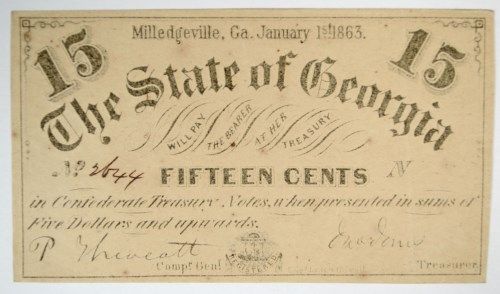 Milledgeville, Ga. January 1st 1863.
15 15
The State of Georgia
WILL PAY THE BEARER AT HER TREASURY
No 2644 N
FIFTEEN CENTS
in Confederate Treasury Notes, when presented in sums of
Five Dollars and upwards.
P
Compt Genl Treasurer
REGISTERED